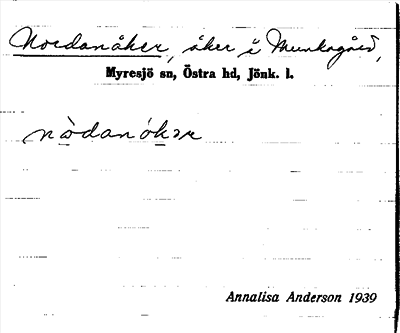 Nordanåker, åker i Munkagård,
Myresjö sn, Östra hd, Jönk. l.
nòdanókər
Annalisa Anderson 1939